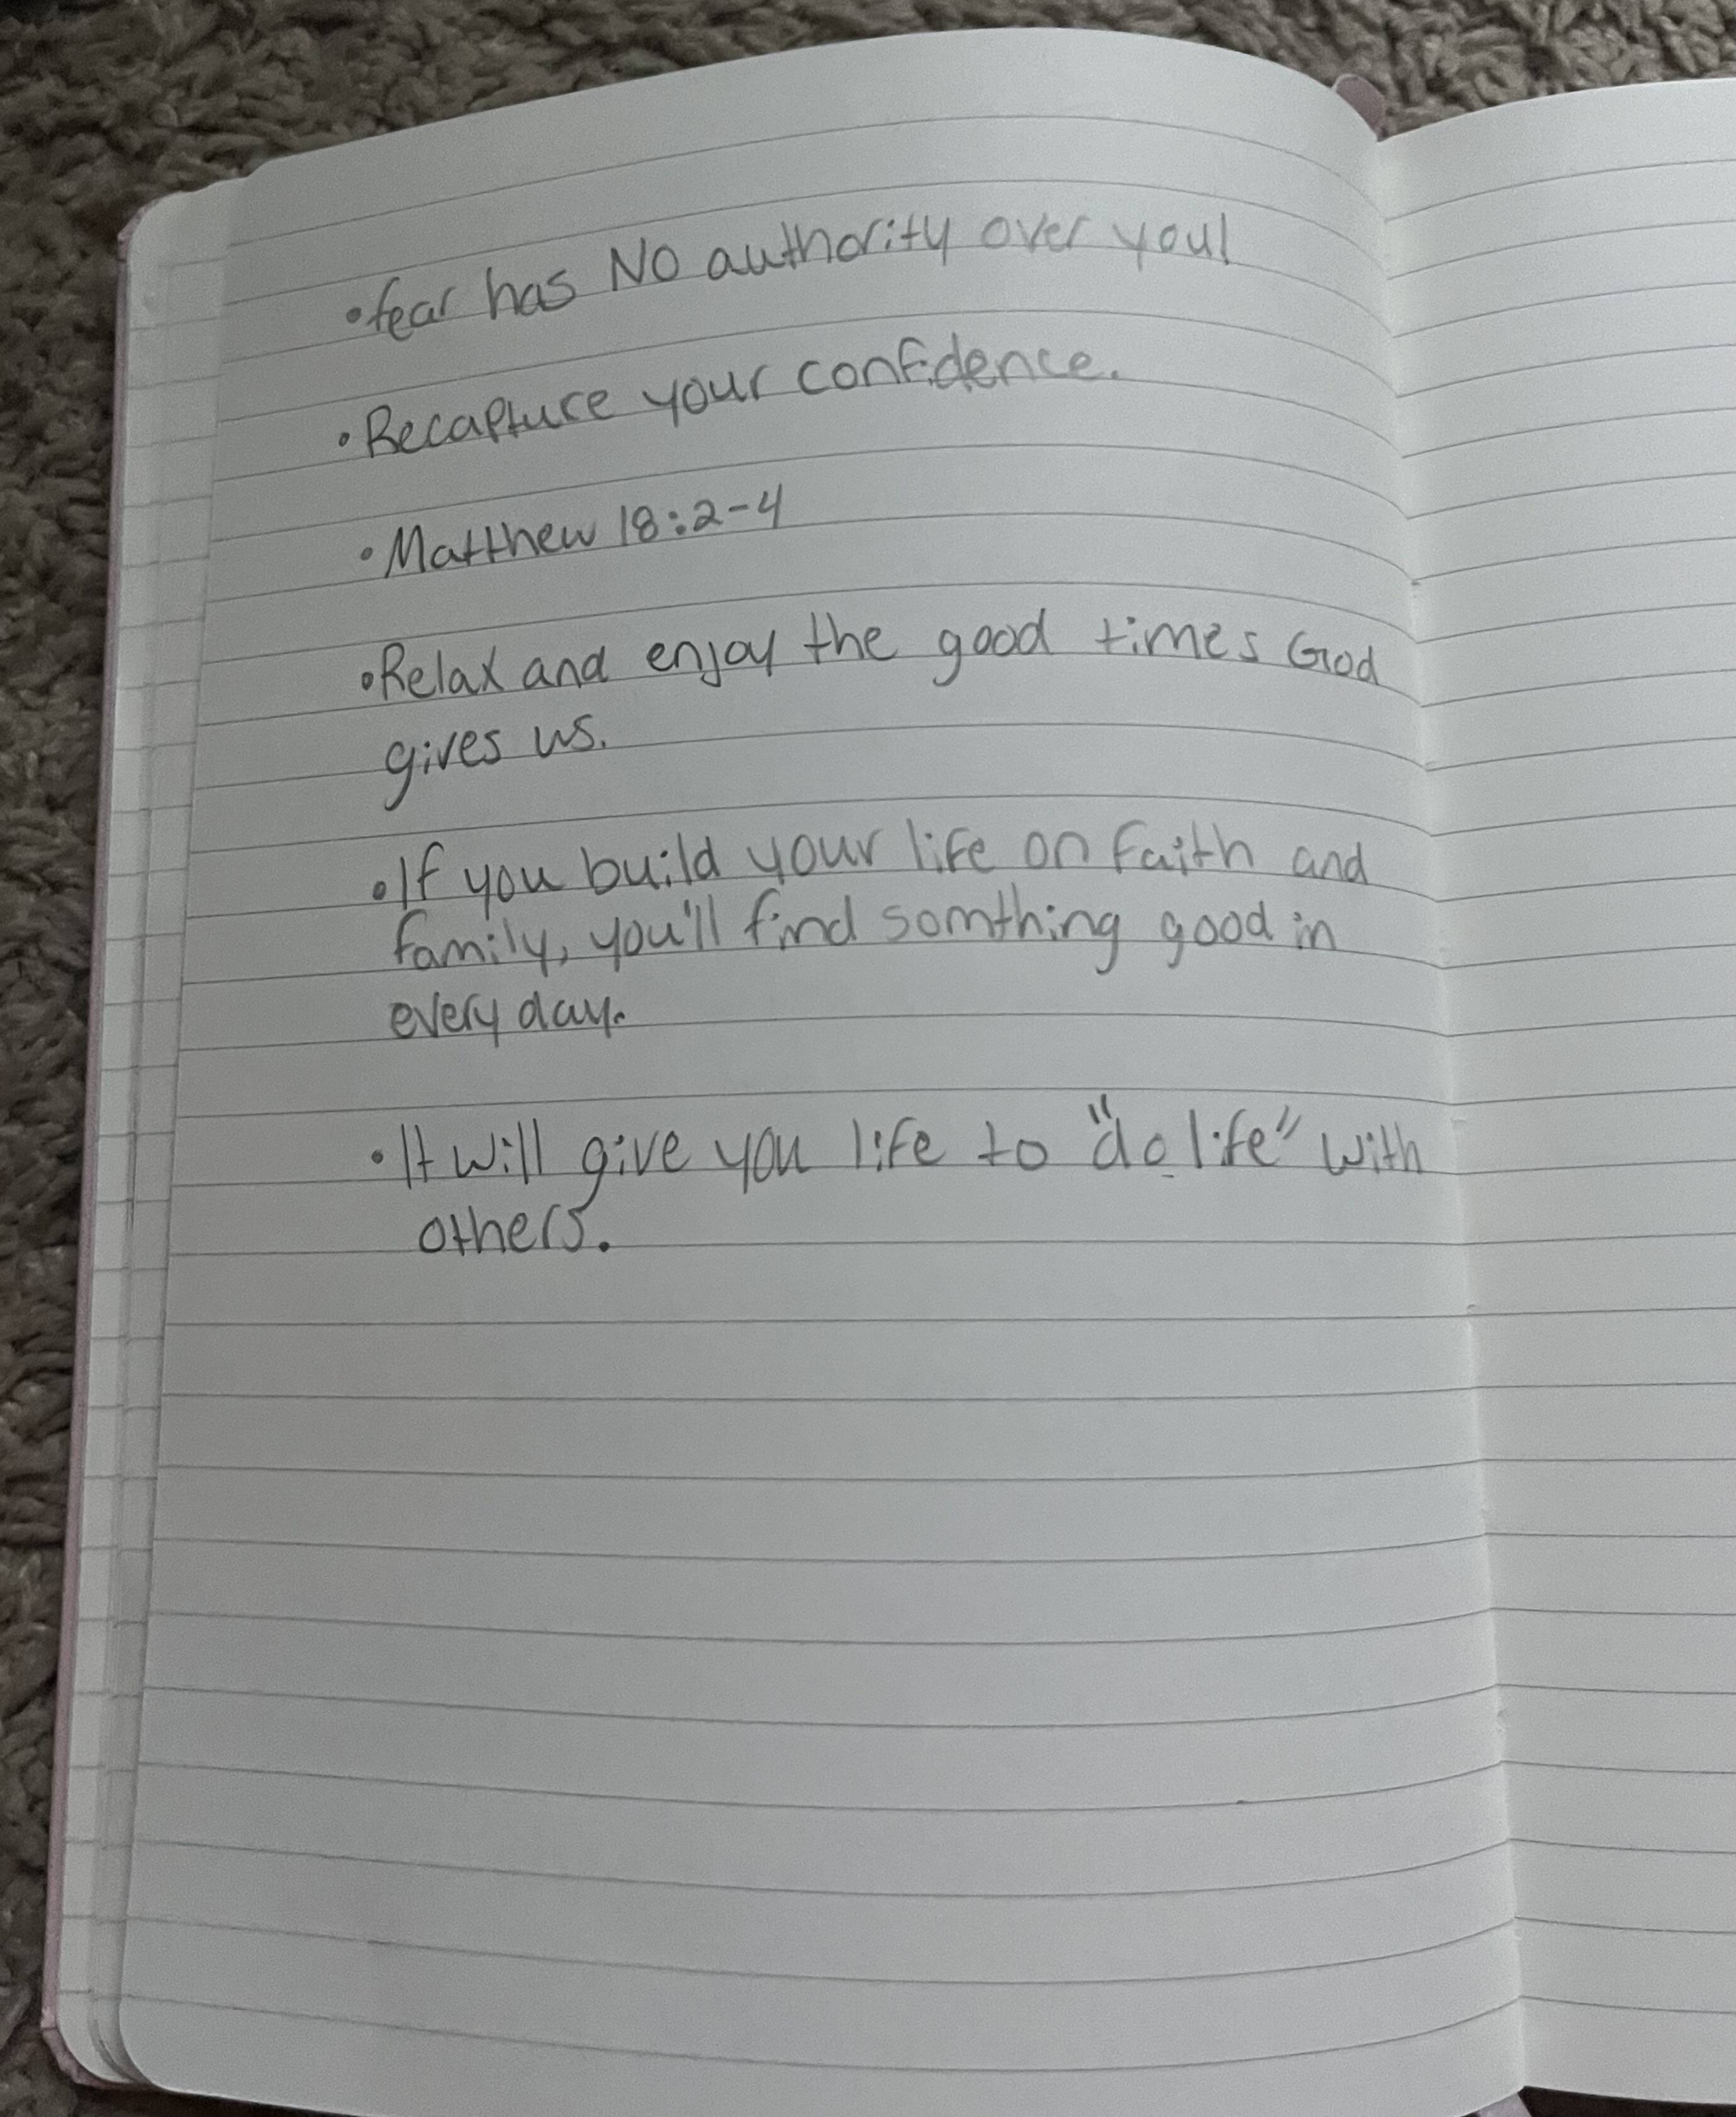 •fear has NO authority over you!
•Recapture your confidence.
•Matthew 18:2-4
•Relax and enjoy the good times God
gives us.
•If you build your life on faith and
family, you'll find somthing good in
every day.
•It will give you life to "do life" with
others.